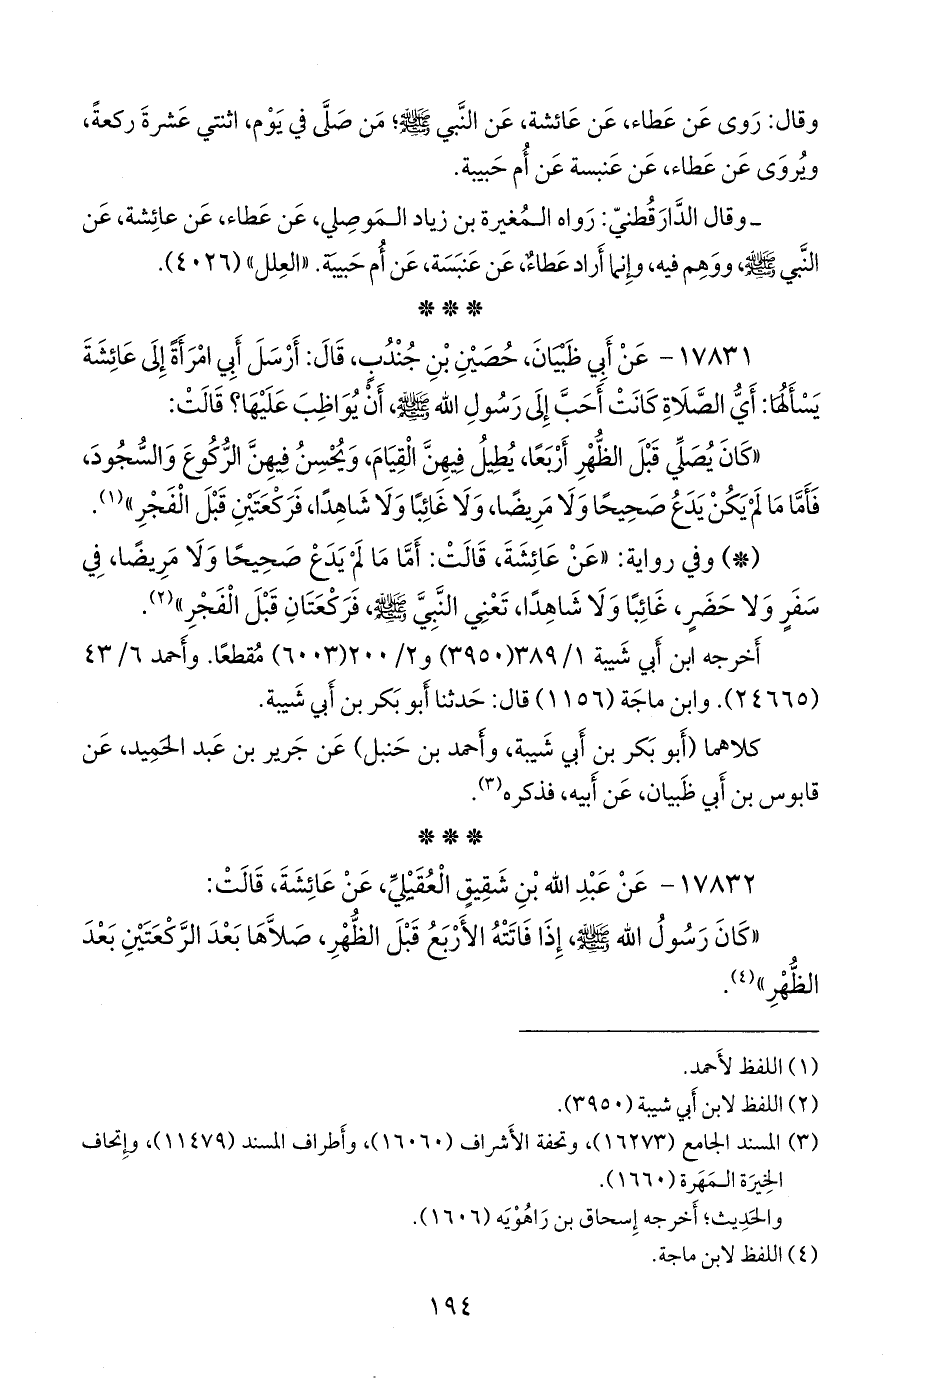 وقال: رَوى عَن عَطاء، عَن عَائشة، عَن النَّبي ﷺ؛ مَن صَلَّى في يَوْم، اثنتي عَشرةَ ركعةً،
ويُروَى عَن عَطاء، عَن عَنبسة عَن أُم حَبيبة.
ـ وقال الدَّارَقُطنيّ: رَواه الـمُغيرة بن زياد الـمَوصِلي، عَن عَطاء، عَن عائِشة، عَن
النَّبي ﷺ، ووَهِم فيه، وإنما أَراد عَطاءٌ، عَن عَنبَسَة، عَن أُم حَبيبَة. «العِلل» (٤٠٢٦).
* * *
١٧٨٣١- عَنْ أَبِي ظَبْيَانَ، حُصَيْنِ بْنِ جُنْدُبٍ، قَالَ: أَرْسَلَ أَبِي امْرَأَةً إِلَى عَائِشَةَ
يَسْأَلُهَا: أَيُّ الصَّلَاةِ كَانَتْ أَحَبَّ إِلَى رَسُولِ الله ﷺ، أَنْ يُوَاظِبَ عَلَيْهَا؟ قَالَتْ:
«كَانَ يُصَلِّي قَبْلَ الظُّهْرِ أَرْبَعًا، يُطِيلُ فِيهِنَّ الْقِيَامَ، وَيُحْسِنُ فِيهِنَّ الرُّكُوعَ وَالسُّجُودَ،
فَأَمَّا مَا لَمْ يَكُنْ يَدَعُ صَحِيحًا وَلَا مَرِيضًا، وَلَا غَائِبًا وَلَا شَاهِدًا، فَرَكْعَتَيْنِ قَبْلَ الْفَجْرِ»(١).
(*) وفي رواية: «عَنْ عَائِشَةَ، قَالَتْ: أَمَّا مَا لَمْ يَدَعْ صَحِيحًا وَلَا مَرِيضًا، فِي
سَفَرٍ وَلا حَضَرٍ، غَائِبًا وَلَا شَاهِدًا، تَعْنِي النَّبِيَّ ﷺ، فَرَكْعَتَانِ قَبْلَ الْفَجْرِ»(٢).
أخرجه ابن أَبي شَيبة ١/ ٣٨٩(٣٩٥٠) و٢/ ٢٠٠(٦٠٠٣) مُقطعًا. وأَحمد ٦/ ٤٣
(٢٤٦٦٥). وابن ماجَة (١١٥٦) قال: حَدثنا أَبو بَكر بن أَبي شَيبة.
كلاهما (أَبو بَكر بن أَبي شَيبة، وأَحمد بن حَنبل) عَن جَرير بن عَبد الحَميد، عَن
قابوس بن أَبي ظَبيان، عَن أَبيه، فذكره(٣).
* * *
١٧٨٣٢- عَنْ عَبْدِ الله بْنِ شَقِيقٍ الْعُقَيْلِيِّ، عَنْ عَائِشَةَ، قَالَتْ:
«كَانَ رَسُولُ الله ﷺ، إِذَا فَاتَتْهُ الأَرْبَعُ قَبْلَ الظُّهْرِ، صَلاَّهَا بَعْدَ الرَّكْعَتَيْنِ بَعْدَ
الظُّهْرِ»(٤).
(١) اللفظ لأَحمد.
(٢) اللفظ لابن أَبي شيبة (٣٩٥٠).
(٣) المسند الجامع (١٦٢٧٣)، وتحفة الأَشراف (١٦٠٦٠)، وأَطراف المسند (١١٤٧٩)، وإِتحاف
الخِيرَة الـمَهَرة (١٦٦٠).
والحَدِيث؛ أَخرجه إِسحاق بن رَاهُوْيَه (١٦٠٦).
(٤) اللفظ لابن ماجة.
١٩٤